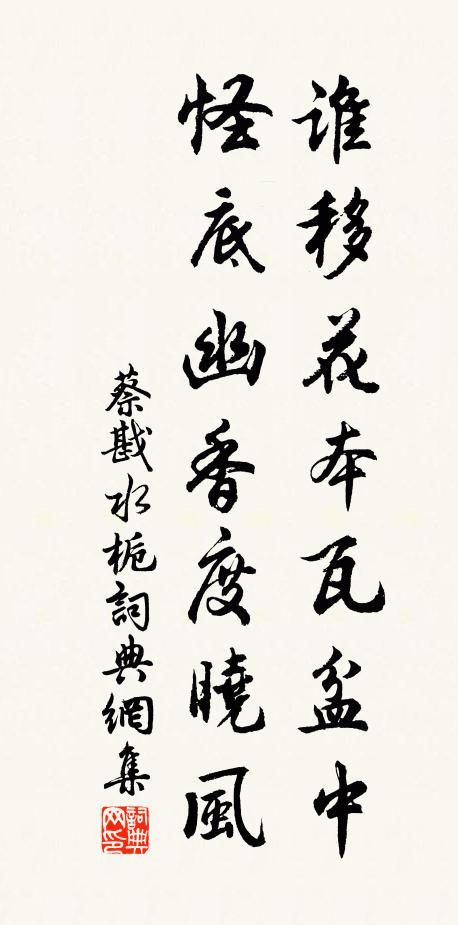 誰移花本瓦盆中
怪底幽香度曉風
蔡戡水梔詞典網集
詞典網印